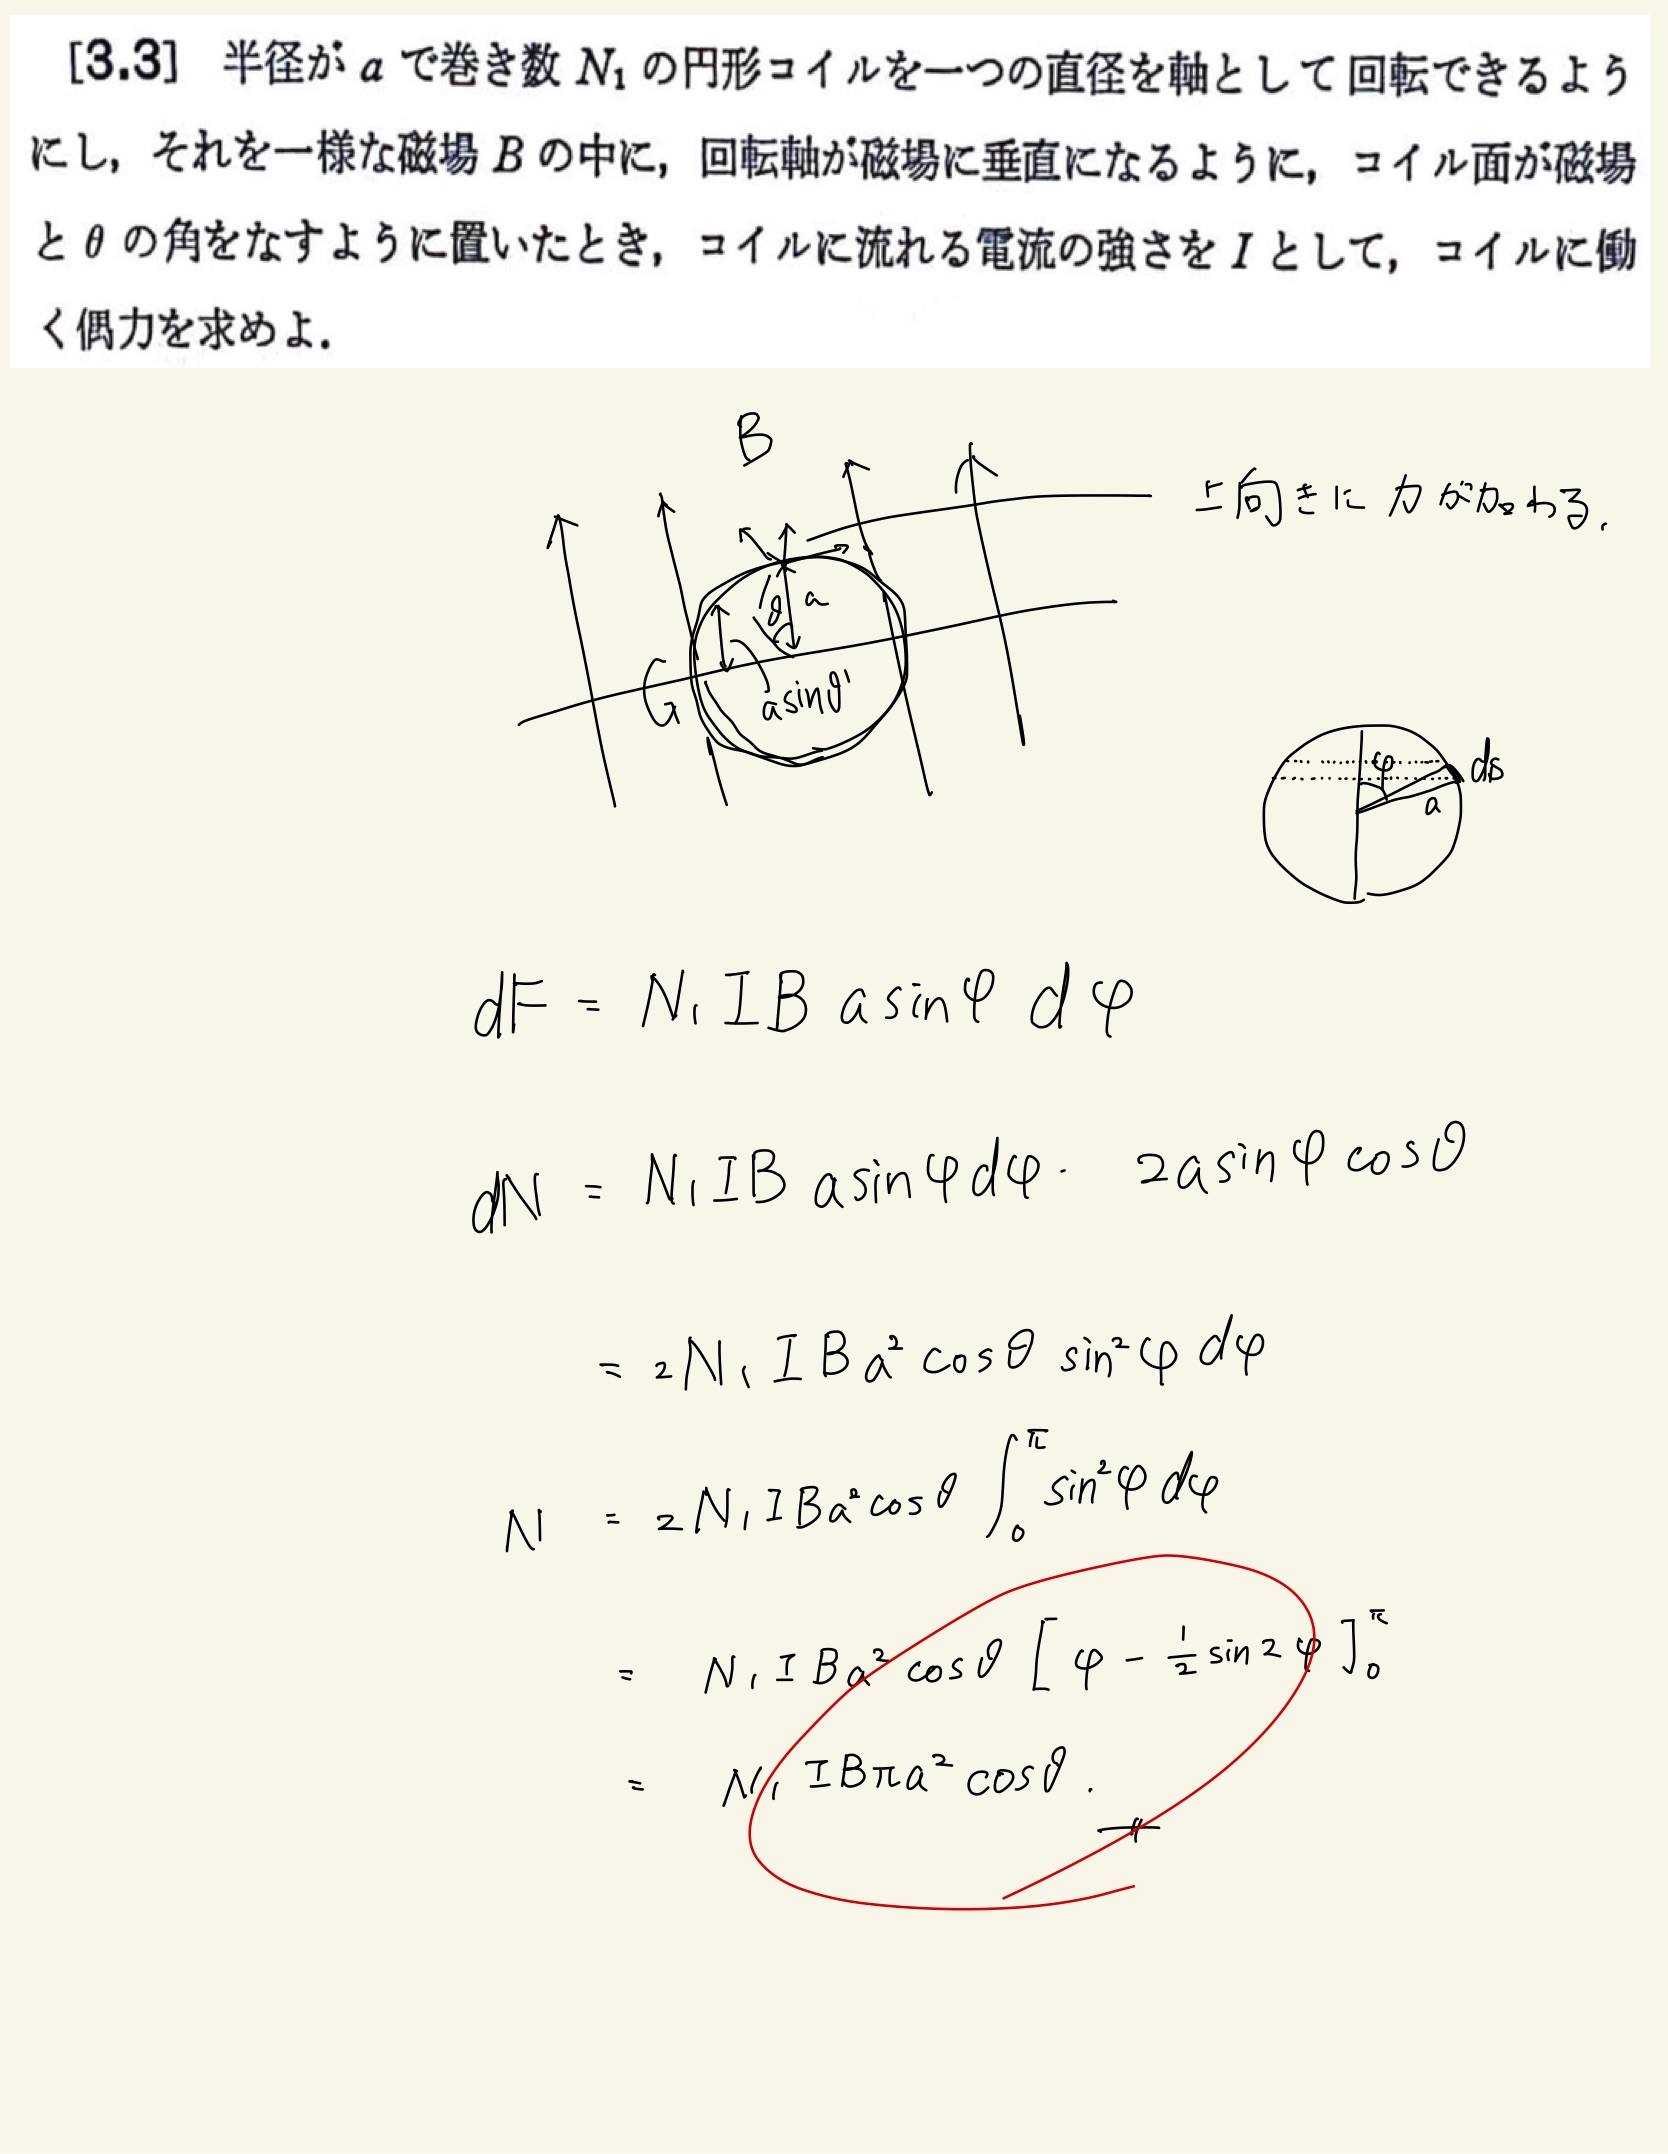 [3.3] 半径が a で巻き数 N₁ の円形コイルを一つの直径を軸として回転できるよう
にし，それを一様な磁場 B の中に，回転軸が磁場に垂直になるように，コイル面が磁場
と θ の角をなすように置いたとき，コイルに流れる電流の強さを I として，コイルに働
く偶力を求めよ．
B
上向きに力が加わる.
θ a
a sinθ'
φ ds
a
dF = N₁ I B a sinφ dφ
dN = N₁ I B a sinφ dφ · 2a sinφ cosθ
= 2N₁ I B a² cosθ sin²φ dφ
N = 2N₁ I B a² cosθ ∫₀^π sin²φ dφ
= N₁ I B a² cosθ [φ - 1/2 sin2φ]₀^π
= N₁ I B π a² cosθ.